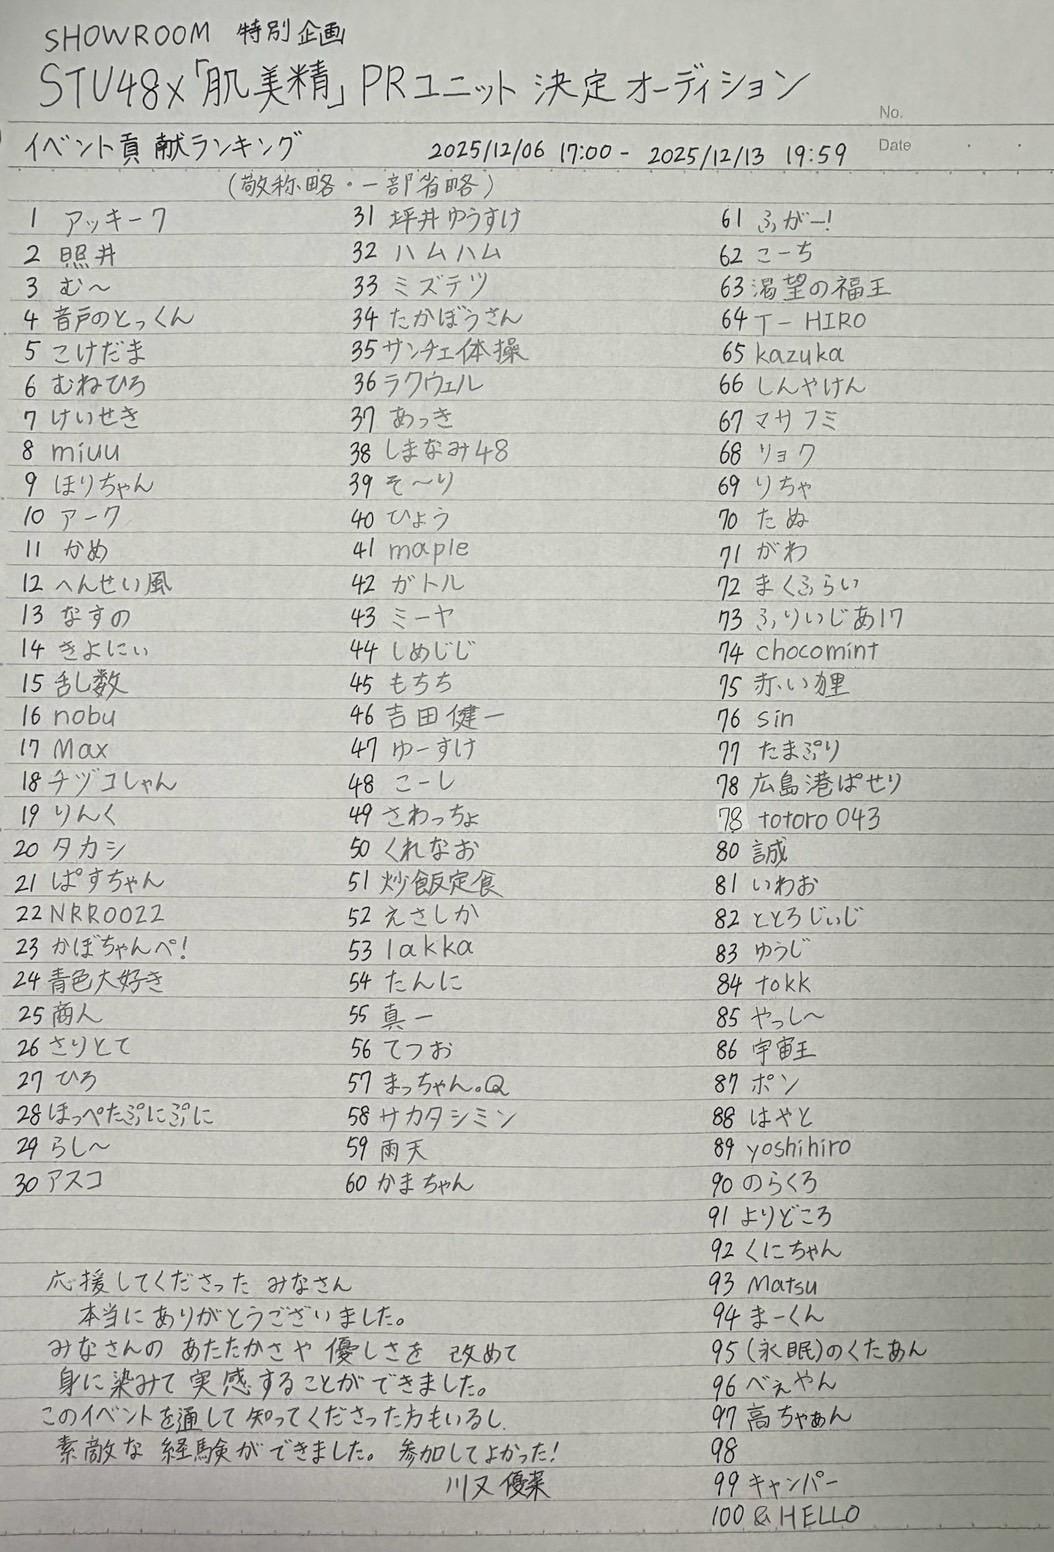 SHOWROOM 特別企画
STU48×「肌美精」PRユニット決定オーディション
No.
Date
イベント貢献ランキング 2025/12/06 17:00 - 2025/12/13 19:59
(敬称略・一部省略)
1 アッキーワ
2 照井
3 む～
4 音戸のとっくん
5 こけだま
6 むねひろ
7 けいせき
8 miuu
9 ほりちゃん
10 アーク
11 かめ
12 へんせい風
13 なすの
14 きよにぃ
15 乱数
16 nobu
17 Max
18 チヅコしゃん
19 りんく
20 タカシ
21 ぱすちゃん
22 NRR0022
23 かぼちゃんぺ!
24 青色大好き
25 商人
26 さりとて
27 ひろ
28 ほっぺたぷにぷに
29 らし～
30 アスコ
31 坪井ゆうすけ
32 ハムハム
33 ミズテツ
34 たかぼうさん
35 サンチェ体操
36 ラクウェル
37 あっき
38 しまなみ48
39 そ～り
40 ひょう
41 maple
42 ガトル
43 ミーヤ
44 しめじじ
45 もちち
46 吉田健一
47 ゆーすけ
48 こーし
49 さわっちょ
50 くれなお
51 炒飯定食
52 えさしか
53 lakka
54 たんに
55 真一
56 てつお
57 まっちゃん。Q
58 サカタシミン
59 雨天
60 かまちゃん
61 ふがー!
62 こーち
63 渇望の福王
64 T-HIRO
65 kazuka
66 しんやけん
67 マサフミ
68 リョウ
69 りちゃ
70 たぬ
71 がわ
72 まくふらい
73 ふりいじあ17
74 chocomint
75 赤い狸
76 sin
77 たまぷり
78 広島港ぱせり
78 totoro043
80 誠
81 いわお
82 ととろじぃじ
83 ゆうじ
84 tokk
85 やっし～
86 宇宙王
87 ポン
88 はやと
89 yoshihiro
90 のらくろ
91 よりどころ
92 くにちゃん
93 Matsu
94 まーくん
95 (永眠)のくたあん
96 べぇやん
97 高ちゃぁん
98
99 キャンパー
100 & HELLO
応援してくださった みなさん
本当にありがとうございました。
みなさんの あたたかさや 優しさを 改めて
身に染みて 実感することができました。
このイベントを通して 知ってくださった方もいるし、
素敵な 経験ができました。 参加してよかった!
川又 優菜